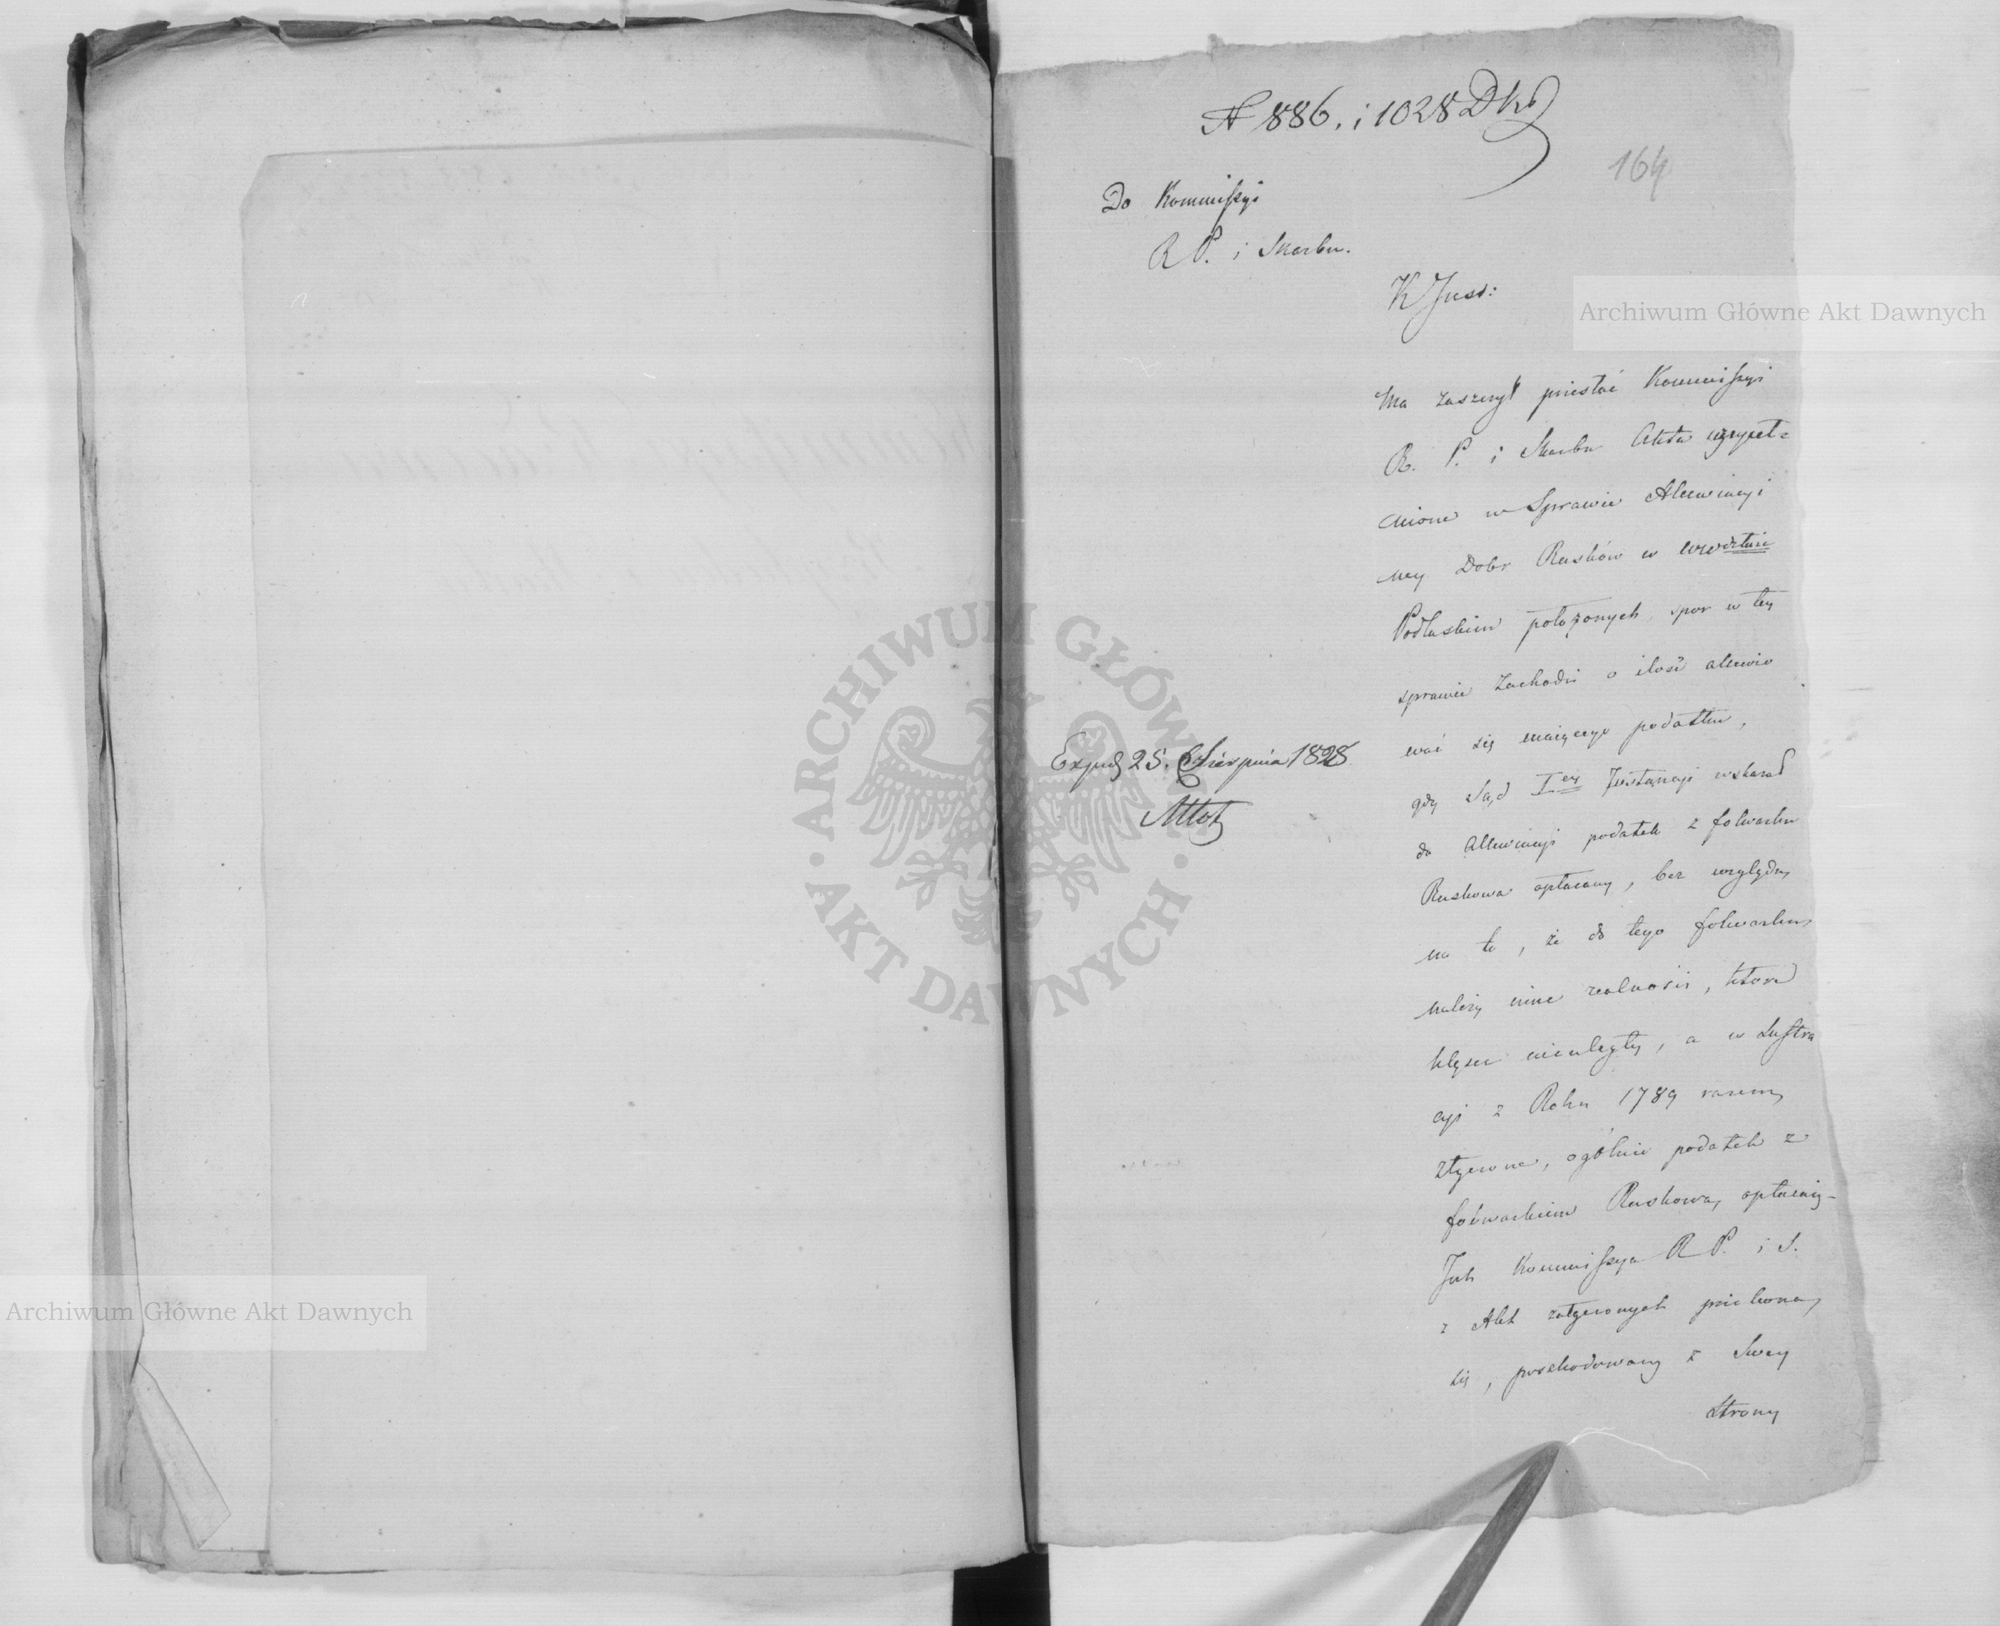 N 886. i 1028 Dks
164
Do Kommissyi
R P. i Skarbu.
K Juss:
Ma zaszczyt przesłać Kommissyi
R. P. i Skarbu Akta uzupeł=
nione w Sprawie Alluwiacyi
ney Dobr Rusków w Wwdztwie
Podlaskim położonych, spor w tey
sprawie zachodzi o ilość alluwio
wać się maiącego podatku,
gdy Sąd Iey Instancyi wskazał
do Alluwiacyi podatek z folwarku
Ruskowa opłacany, bez względu
na to, że do tego folwarku
należą inne realności, które
klęsce nieuległy, a w Lustra
cyi z Roku 1789 razem
złączone, ogólnie podatek z
folwarkiem Ruskowa, opłacaią-
Jak Kommissya R P. i S.
z Akt załączonych przekona
się, poszkodowany z Swey
Strony
Exped 25. Sierpnia 1828
Archiwum Główne Akt Dawnych
Archiwum Główne Akt Dawnych
ARCHIWUM GŁÓWNE · AKT DAWNYCH ·